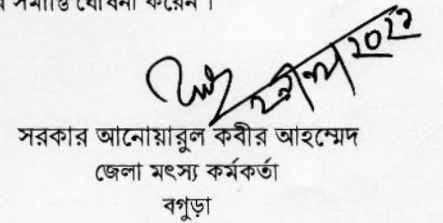 সমাপ্তি ঘোষনা করেন।
সরকার আনোয়ারুল কবীর আহম্মেদ
জেলা মৎস্য কর্মকর্তা
বগুড়া